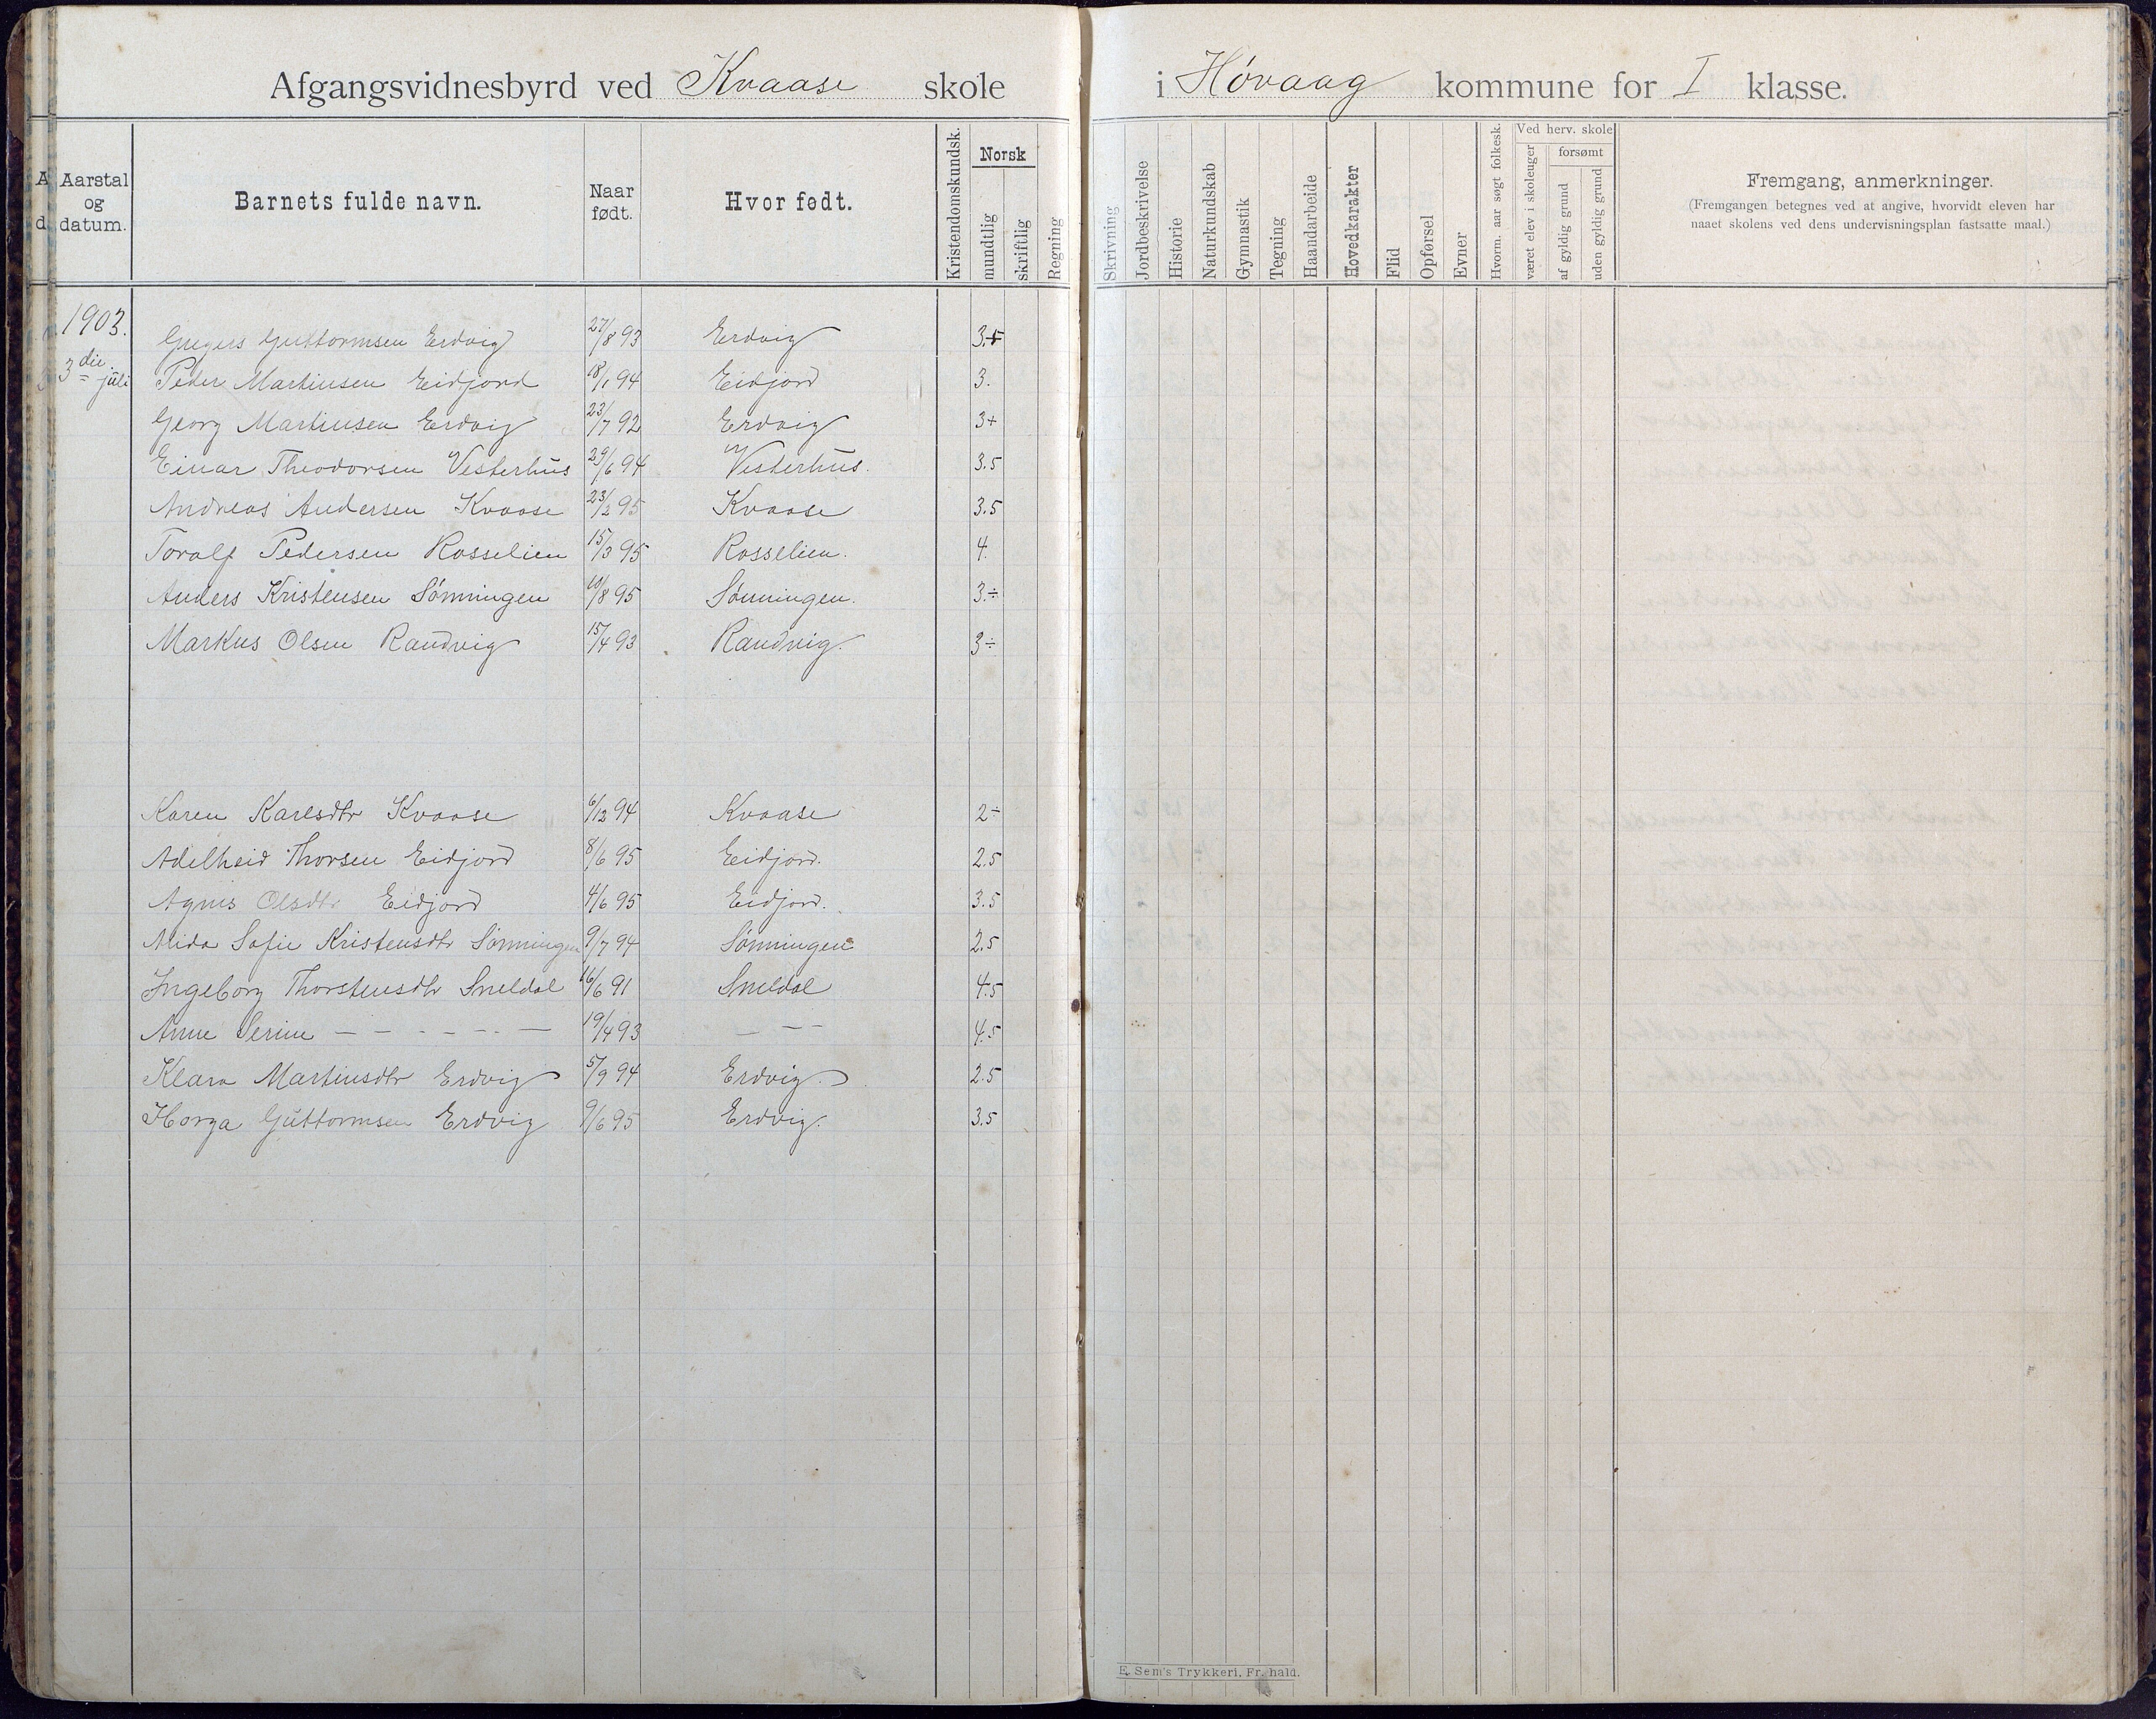 Afgangsvidnesbyrd ved Kvaase skole i Høvaag kommune for I klasse.
Aarstal og datum.
Barnets fulde navn.
Naar født.
Hvor født.
Kristendomskundsk.
Norsk
mundtlig
skriftlig
Regning
Skrivning
Jordbeskrivelse
Historie
Naturkundskab
Gymnastik
Tegning
Haandarbeide
Hovedkarakter
Flid
Opførsel
Evner
Hvorm. aar søgt folkesk.
Ved herv. skole
været elev i skoleuger
forsømt
af gyldig grund
uden gyldig grund
Fremgang, anmerkninger.
(Fremgangen betegnes ved at angive, hvorvidt eleven har
naaet skolens ved dens undervisningsplan fastsatte maal.)
1903.
3die juli
Guttormsen Erdvig 27/8 93 Erdvig
Peder Martinsen Eidjord 18/1 94 Eidjord 3.
Georg Martinsen Erdvig 23/7 92 Erdvig 3+
Einar Theodorsen Vesterhus 29/6 94 Vesterhus. 3.5
Andreas Andersen Kvaase 23/2 95 Kvaase 3.5
Toralf Pedersen Rosselien 15/3 95 Rosselien. 4.
Anders Kristensen Sønningen 10/8 95 Sønningen. 3.÷
Markus Olsen Randvig 15/4 93 Randvig. 3÷
Karen Karlsdtr Kvaase 6/12 94 Kvaase 2÷
Adelheid Thorsen Eidjord 8/6 95 Eidjord. 2.5
Agnes Olsdtr Eidjord 4/6 95 Eidjord. 3.5
Alida Sofie Kristensdtr Sønningen 9/7 94 Sønningen 2.5
Ingeborg Thorstensdtr Sneldal 16/6 91 Sneldal 4.5
Anne Serine — — - — - - — 19/4 93 — — — 4.5
Klara Martinsdtr Erdvig 5/9 94 Erdvig. 2.5
Horga Guttormsen Erdvig 9/6 95 Erdvig. 3.5
E. Sem's Trykkeri, Fr.hald.